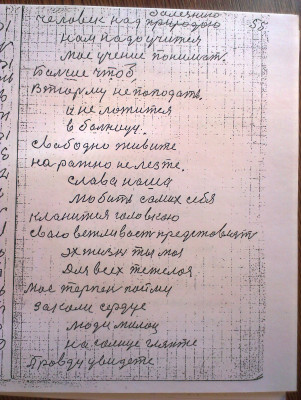 55.
болезнию
человек над природою
нам надо учится
мое учение понимат.
Болше чтоб,
втюрму непоподат.
и не ложится
в болницу.
Свободно живите
на ражно нелезте.
слава наша
любить самих себя
кланится головою
Сваю вежливость предстовият
эх жизнь ты моя
для всех тежелоя
Мое терпен пойму
закали сердце
люди милоц
на солнце гляньте
Правду увидете